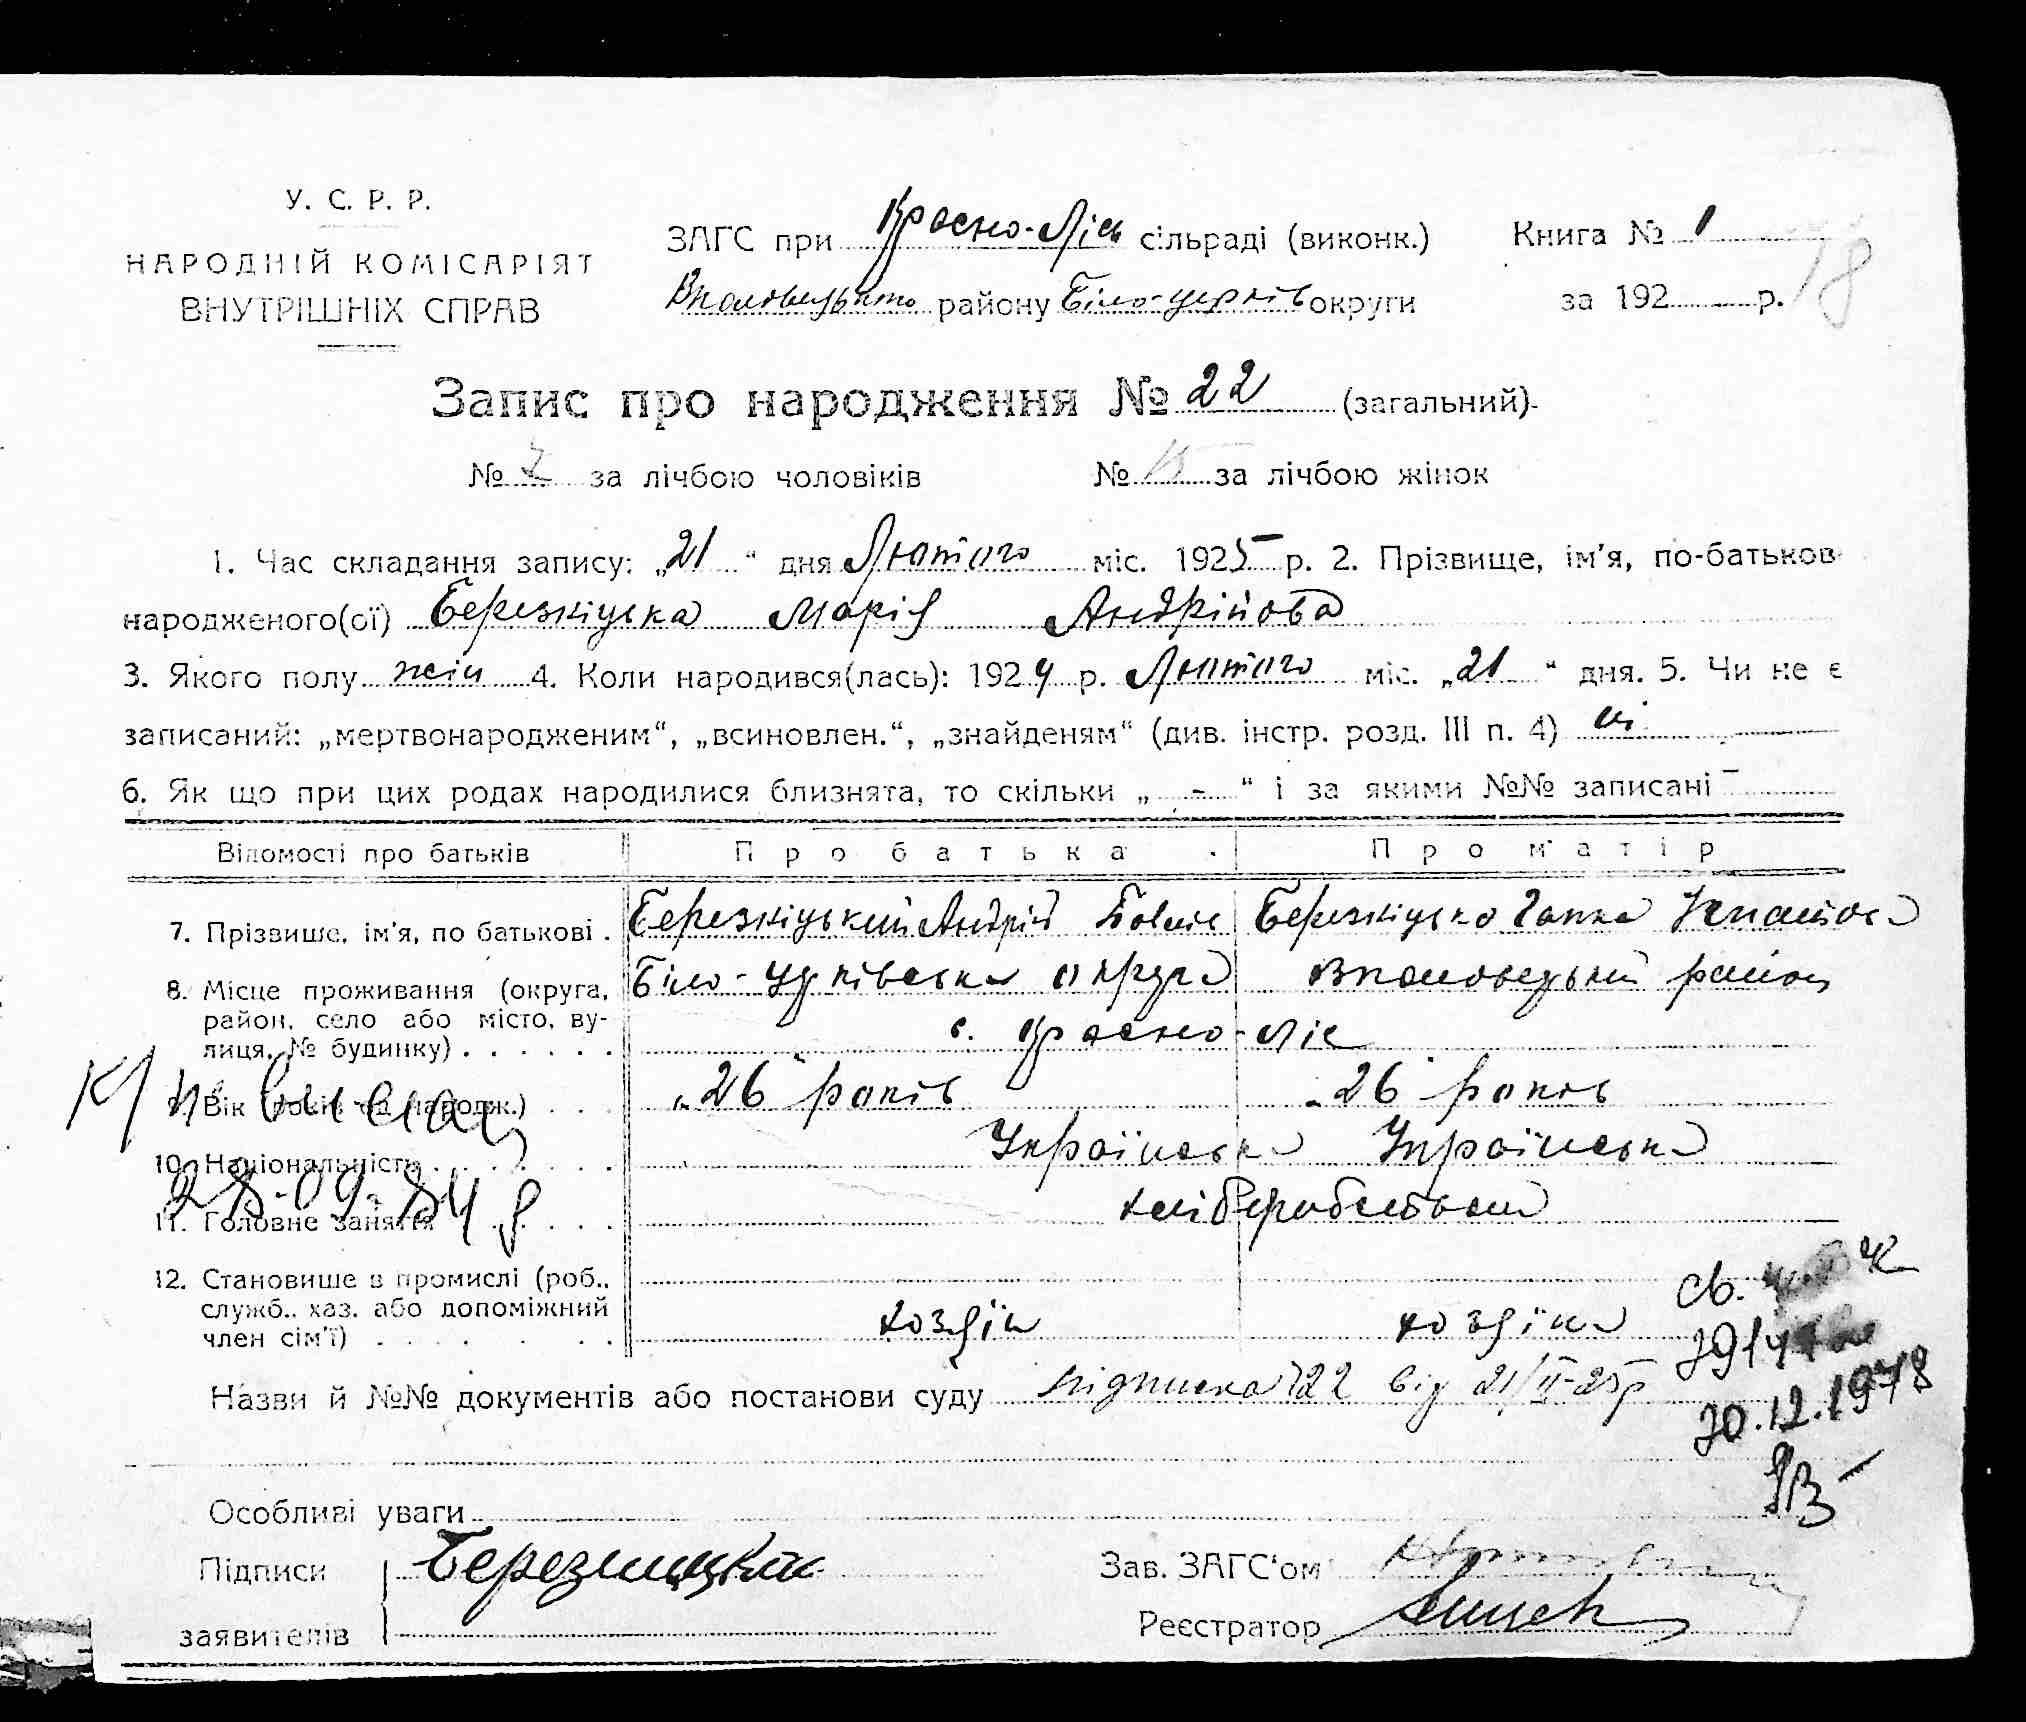 У. С. Р. Р.
НАРОДНІЙ КОМІСАРІЯТ
ВНУТРІШНІХ СПРАВ
ЗАГС при Красно-Ліс сільраді (виконк.)
району Біло-церків округи
Книга № 1
за 192 р.
18
Запис про народження № 22 (загальний)
№ 7 за лічбою чоловіків № 15 за лічбою жінок
1. Час складання запису: „21“ дня Лютого міс. 1925 р. 2. Прізвище, ім'я, по-батьков
народженого(ої) Березніцька Марія Андрійова
3. Якого полу жін 4. Коли народився(лась): 1924 р. Лютого міс. „21“ дня. 5. Чи не є
записаний: „мертвонародженим“, „всиновлен.“, „знайденям“ (див. інстр. розд. III п. 4) ні
6. Як що при цих родах народилися близнята, то скільки „ - “ і за якими №№ записані -
Відомості про батьків Про батька Про матір
7. Прізвише, ім'я, по батькові . Березніцький Андрій Березніцька Ганка
8. Місце проживання (округа, Біло-Церківська округа район
район, село або місто, ву- с. Красно-Ліс
лиця, № будинку) . . . . . .
9. Вік (років од народж.) . . . „26 років „26 років
10. Національність . . . . . . . Українська Українська
28-09-84 р
11. Головне заняття . . . . хліборобством
12. Становише в промислі (роб.,
служб., хаз. або допоміжний
член сім'ї) . . . . . . . хозяїн хозяїка
св.
Назви й №№ документів або постанови суду підписка 722 від 21/II-25р
30.12.1978
Особливі уваги
Підписи Березницкий
заявителів
Зав. ЗАГС'ом
Реєстратор